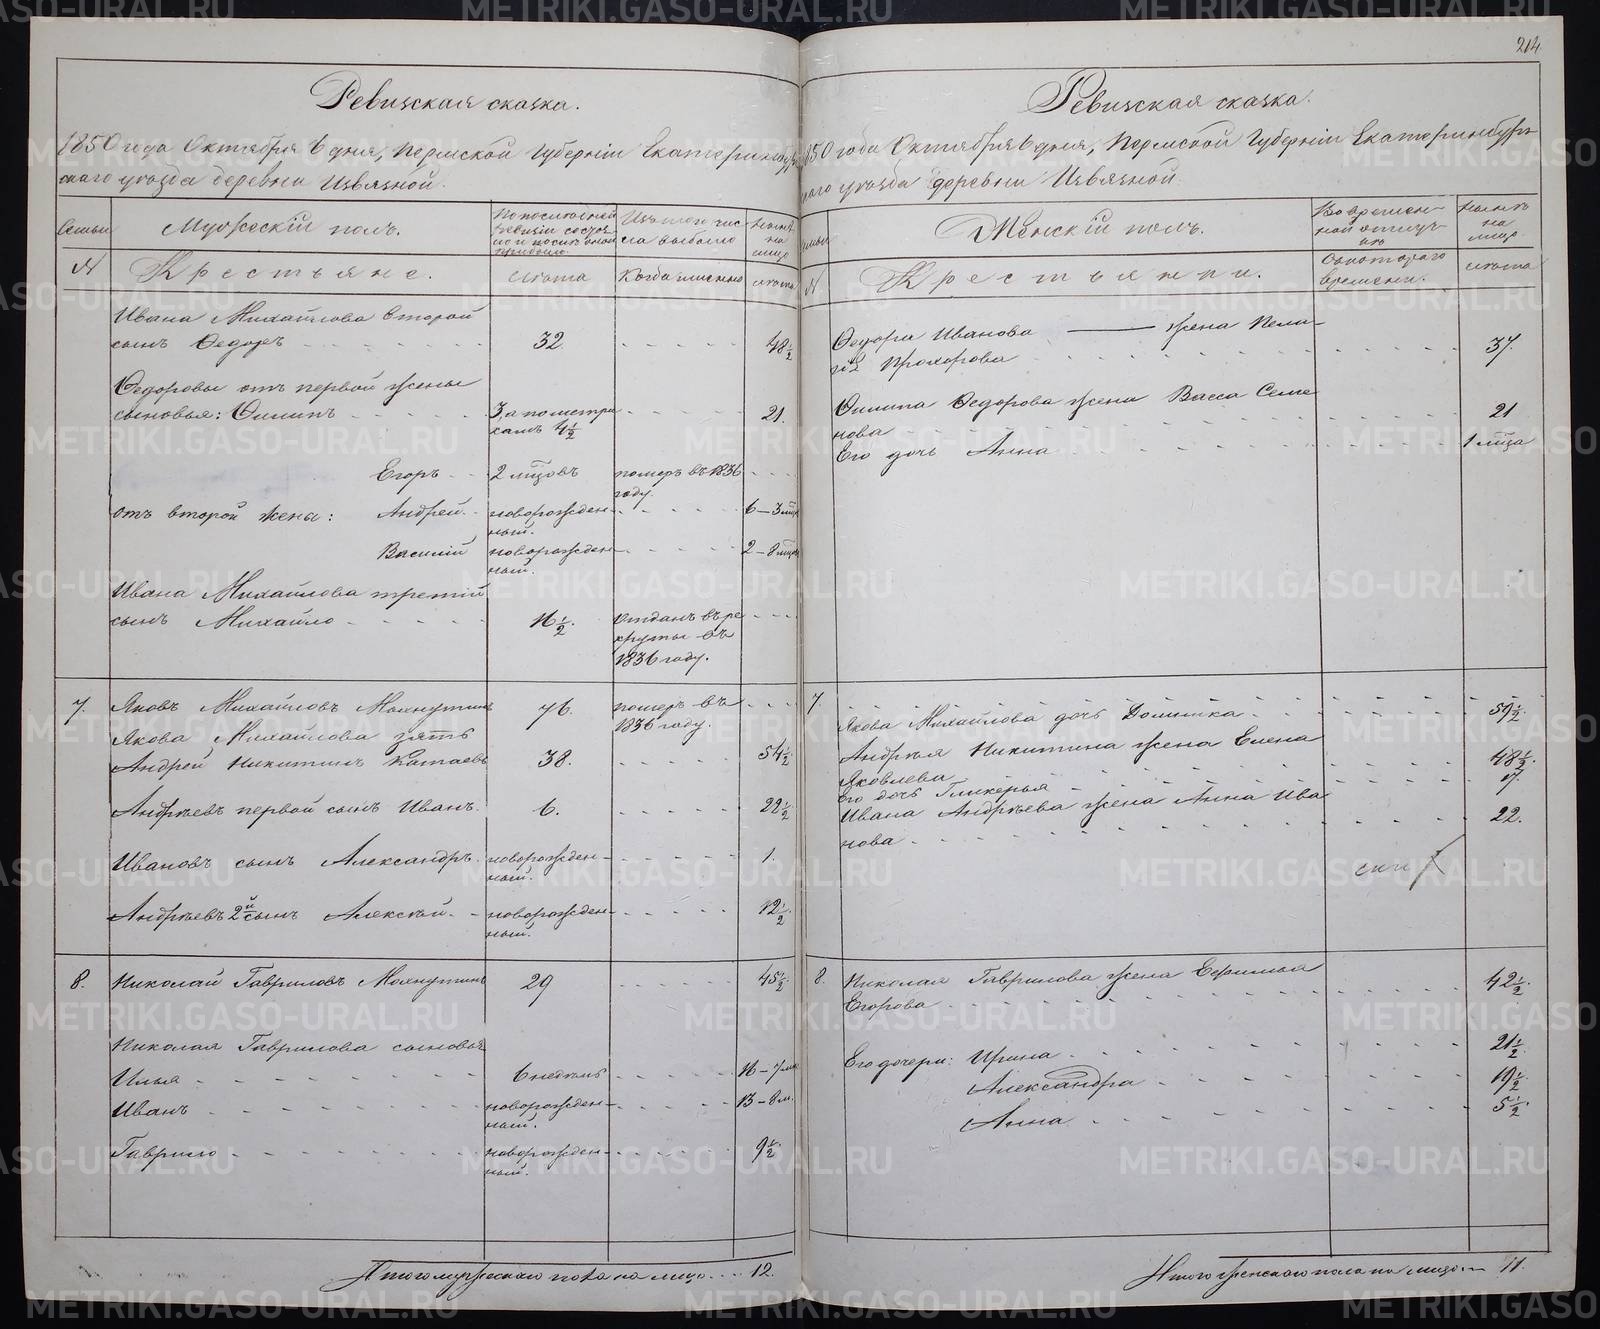 214.
Ревизская сказка.
1850 года Октября 6 дня, Пермской Губернiи Екатеринбур
скаго уѣзда деревни Извязной.
Семьи
Мужескiй полъ.
По последней
ревизiи состоя
ло и после оной
прибыло
Изъ того чис-
ла выбыло
Нынѣ
на
лицо
№
Крестьяне.
Лѣта
Когда именно
лѣта
Ивана Михайлова второй
сынъ Федоръ 32. 48 1/2
Федоровы отъ первой жены
сыновья: Филипъ 3 а по метри
камъ 4 1/2 21.
Егоръ 2 мцовъ померъ въ 1836
году.
отъ второй жены: Андрей новорожден-
ный. 6 – 3 мца
Василiй новорожден-
ный. 2 – 8 мцов
Ивана Михайлова третiй
сынъ Михайло 16 1/2 отданъ въ ре
круты въ
1836 году.
7. Яковъ Михайловъ Махнутинъ 76. померъ въ
1836 году.
Якова Михайлова зять
Андрей Никитинъ Катаевъ 38. 54 1/2
Андрѣевъ первой сынъ Иванъ. 6. 22 1/2
Ивановъ сынъ Александръ. новорожден-
ный. 1.
Андрѣевъ 2й сынъ Алексѣй новорожден-
ный. 12 1/2
8. Николай Гавриловъ Махнутинъ 29 45 1/2
Николая Гаврилова сыновья
Илья 6 недѣль 16 – 7 мц
Иванъ новорожден-
ный. 13 – 8 м.
Гаврило новорожден-
ный. 9 1/2
Итого мужескаго пола на лицо 12.
Ревизская сказка.
1850 года Октября 6 дня, Пермской Губернiи Екатеринбур
скаго уѣзда деревни Извязной
Семьи
Женскiй полъ.
Во времен-
ной отлуч-
кѣ
Нынѣ
на
лицо.
№
Крестьянки.
Съ котораго
времени.
лѣта
Федора Иванова — жена Пела-
гѣя Прохорова 37.
Филипа Федорова жена Васса Семе
нова 21
Его дочь Анна 1 мцъ
7.
Якова Михайлова дочь Домника 59 1/2
Андрѣя Никитина жена Елена
Яковлева 48 1/2
Его дочь Гликерья 17.
Ивана Андрѣева жена Анна Ива
нова 22.
8. Николая Гаврилова жена Ефимья
Егорова 42 1/2
Его дочери: Ирина 21 1/2
Александра 19 1/2
Анна 5 1/2
Итого женскаго пола на лицо 11.
METRIKI.GASO-URAL.RU